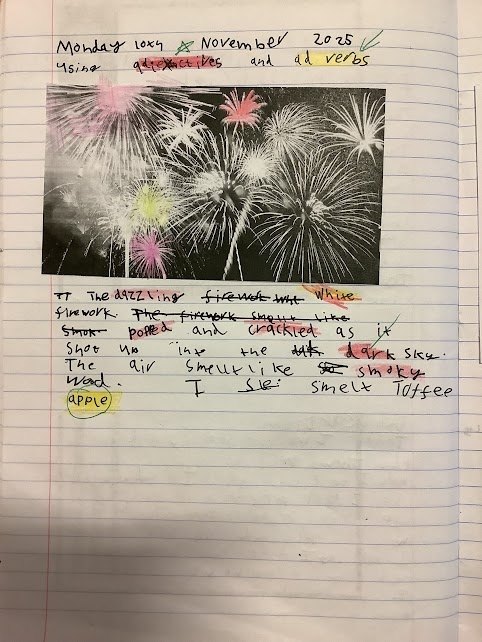 Monday 10th November 2025
Using adjectives and ad verbs
The dazzling white
firework.
popped and crackled as it
Shot up into the dark sky.
The air smelt like smoky
wood. I smelt Toffee
apple